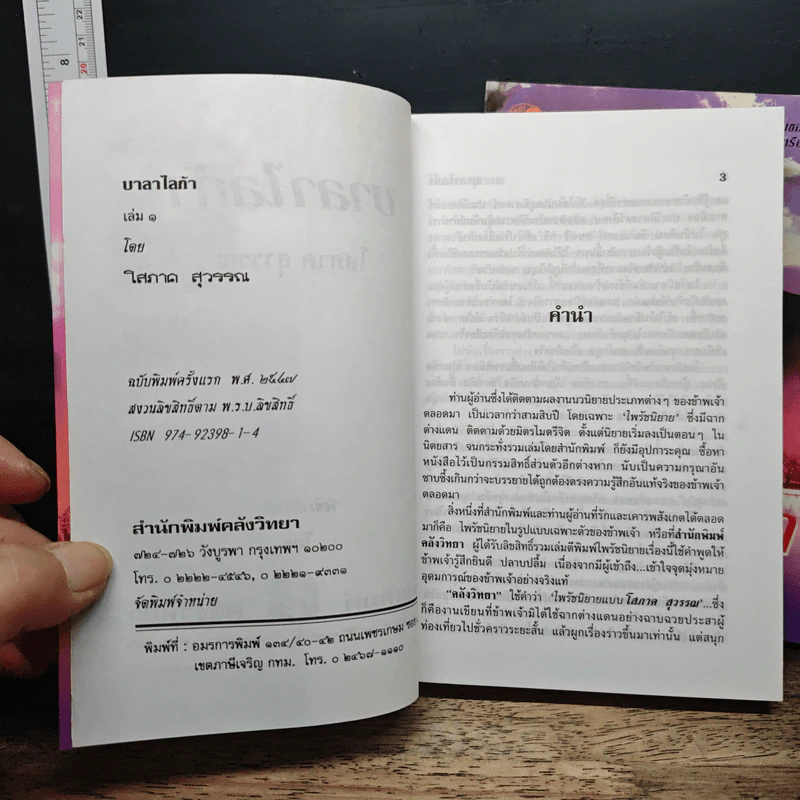 บาลาไลก้า
เล่ม ๑
โดย
โสภาค สุวรรณ
ฉบับพิมพ์ครั้งแรก พ.ศ. ๒๕๔๗
สงวนลิขสิทธิ์ตาม พ.ร.บ.ลิขสิทธิ์
ISBN 974-92398-1-4
สำนักพิมพ์คลังวิทยา
๗๒๔-๗๒๖ วังบูรพา กรุงเทพฯ ๑๐๒๐๐
โทร. ๐ ๒๒๒๒-๔๕๔๖, ๐ ๒๒๒๑-๙๓๓๑
จัดพิมพ์จำหน่าย
พิมพ์ที่ : อมรการพิมพ์ ๑๓๔/๔๐-๔๒ ถนนเพชรเกษม ซอย
เขตภาษีเจริญ กทม. โทร. ๐ ๒๔๖๗-๑๑๑๐
3
คำนำ
ท่านผู้อ่านซึ่งได้ติดตามผลงานนวนิยายประเภทต่างๆ ของข้าพเจ้า
ตลอดมา เป็นเวลากว่าสามสิบปี โดยเฉพาะ 'ไพรัชนิยาย' ซึ่งมีฉาก
ต่างแดน ติดตามด้วยมิตรไมตรีจิต ตั้งแต่นิยายเริ่มลงเป็นตอนๆ ใน
นิตยสาร จนกระทั่งรวมเล่มโดยสำนักพิมพ์ ก็ยังมีอุปการะคุณ ซื้อหา
หนังสือไว้เป็นกรรมสิทธิ์ส่วนตัวอีกต่างหาก นับเป็นความกรุณาอัน
ซาบซึ้งเกินกว่าจะบรรยายได้ถูกต้องตรงความรู้สึกอันแท้จริงของข้าพเจ้า
ตลอดมา
สิ่งหนึ่งที่สำนักพิมพ์และท่านผู้อ่านที่รักและเคารพสังเกตได้ตลอด
มาก็คือ ไพรัชนิยายในรูปแบบเฉพาะตัวของข้าพเจ้า หรือที่สำนักพิมพ์
คลังวิทยา ผู้ได้รับลิขสิทธิ์รวมเล่มตีพิมพ์ไพรัชนิยายเรื่องนี้ใช้คำพูดให้
ข้าพเจ้ารู้สึกยินดี ปลาบปลื้ม เนื่องจากมีผู้เข้าถึง...เข้าใจจุดมุ่งหมาย
อุดมการณ์ของข้าพเจ้าอย่างจริงแท้
"คลังวิทยา" ใช้คำว่า 'ไพรัชนิยายแบบโสภาค สุวรรณ'...ซึ่ง
ก็คืองานเขียนที่ข้าพเจ้ามิได้ใช้ฉากต่างแดนอย่างฉาบฉวยประสาผู้
ท่องเที่ยวไปชั่วคราวระยะสั้น แล้วผูกเรื่องราวขึ้นมาเท่านั้น แต่สนุก
8
20
21
22